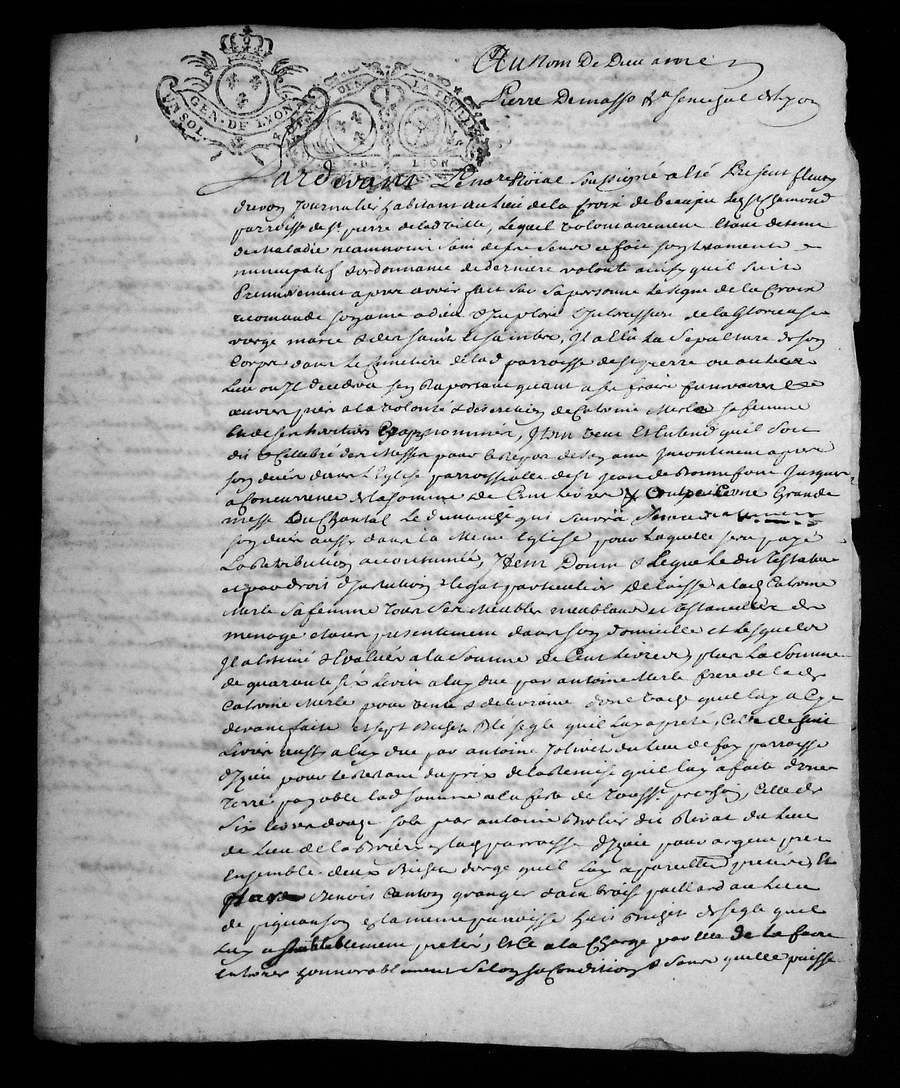 UN SOL. GEN. DE LYON
GEN. DE LYON
Au Nom De Dieu amen
Pierre Demasso senechal de lyon
Pardevant Le no.re Roial soussigné a esté Present fleury
journalier habitant au lieu de la Croix de beaujeu Les St Chamond
parroisse de St pierre de lad ville, Lequel volontairement Etant detenu
de Maladie neanmoins sain de ses sans a fait son testament
nuncupatif & ordonnance de derniere volonté ainsy quil suit
Premierement apres avoir fait sur sa personne Le signe de la Croix
recomandé son ame a dieu & Imploré l'Intercession de la Glorieuse
vierge marie & des saints & saintes, Il a Elu La sepulture de son
Corps dans Le Cimetiere de lad parroisse de St pierre ou autre
Lieu ou Il decedera s'en Raportant quant a ses frais funeraires &
œuvres pies a la volonté & discretion de Caterine Merle sa femme
& de ses heritiers cy apres nommés, Item veut Et Entend quil soit
dit & Cellebré des Messes pour le Repos de son ame Incontinent apres
son deces dans L'Eglise parroissialle de St Jean de Bonnefond Jusques
a Concurrence de la somme de Cent Livres & outre ce une Grande
messe Du Chantal Le dimanche qui suivra
son deces aussy dans la Meme Eglise pour Laquelle sera payé
La Retribution accoutumée, Item Donne & Legue Led Testateur
et par droit d'Institution & legat particulier Delaisse a lad Caterine
Merle sa femme Tous ses Meubles meublans et Ustancilles de
menage etans presentement dans son domicille et Lesquels
Il a Estimé & Evalués a la somme de Cent Livres, plus La somme
de quarante six Livres a luy due par antoine Merle frere de lad
Caterine Merle pour vente & delivrance d'une vache quil luy a Cy
devant faite et sept Bichets Blé segle quil luy a preté, Celle de huit
Livres aussy a luy due par antoine Jolivet du lieu de fay parroisse
d'Izieu pour le Restant du prix de la Remise quil luy a faite d'une
Terre payable lad somme a la feste de Toussts prochain, Celle de
six Livres douze sols par antoine dit Rivat du Lieu
de Lieu de la Briere parroisse d'Izieu pour argent preté
Ensemble deux Bichets d'orge quil Luy a pareillement pretés, Et
par Benoit Canton granger d'ambroise paillard au Lieu
de pignauson Et la meme parroisse huit Bichets de segle quil
Luy a semblablement pretés, Et Ce a la Charge par Elle de le faire
Enterrer honnorablement selon sa Condition & sans quelle puisse